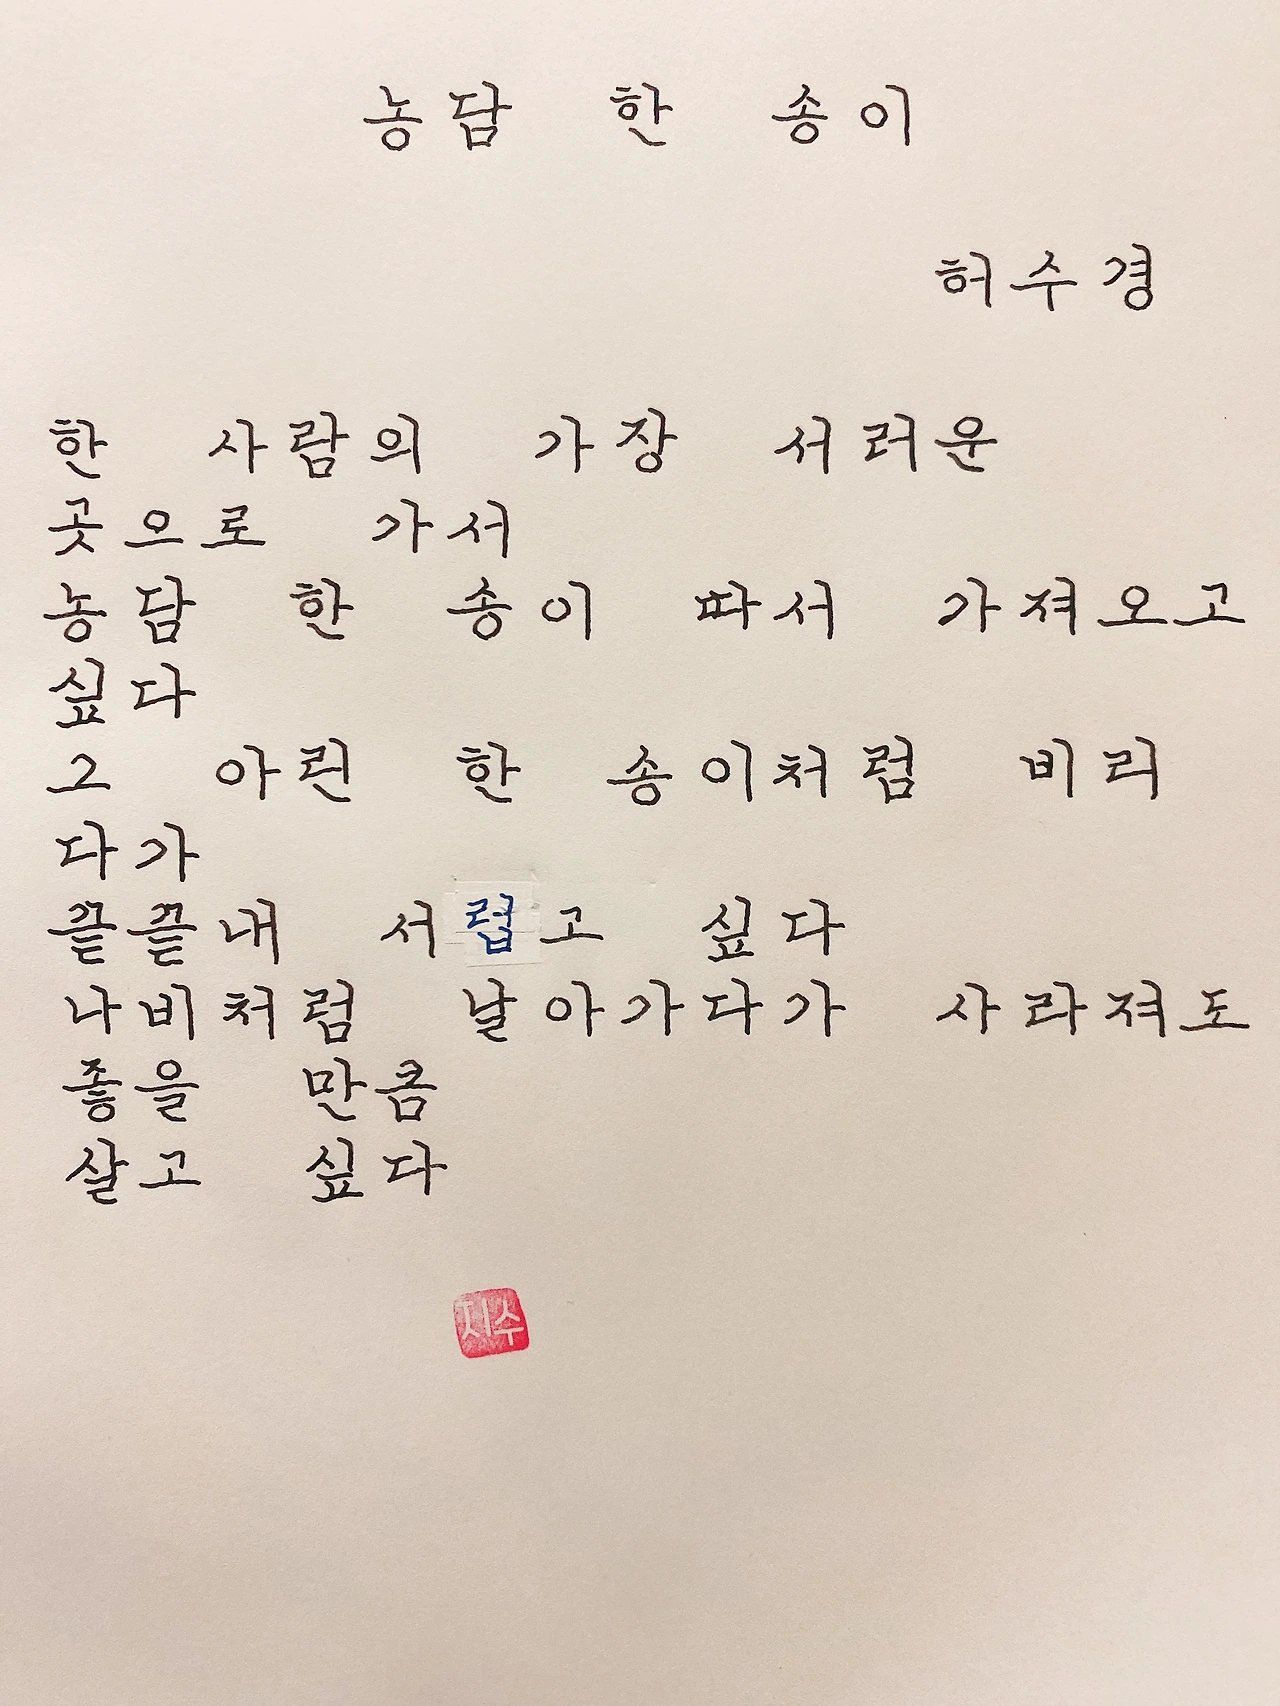 농담 한 송이
허수경
한 사람의 가장 서러운
곳으로 가서
농담 한 송이 따서 가져오고
싶다
그 아린 한 송이처럼 비리
다가
끝끝내 서럽고 싶다
나비처럼 날아가다가 사라져도
좋을 만큼
살고 싶다
지수